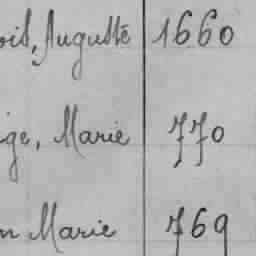 ois, Auguste 1660
ige, Marie 770
n Marie 769